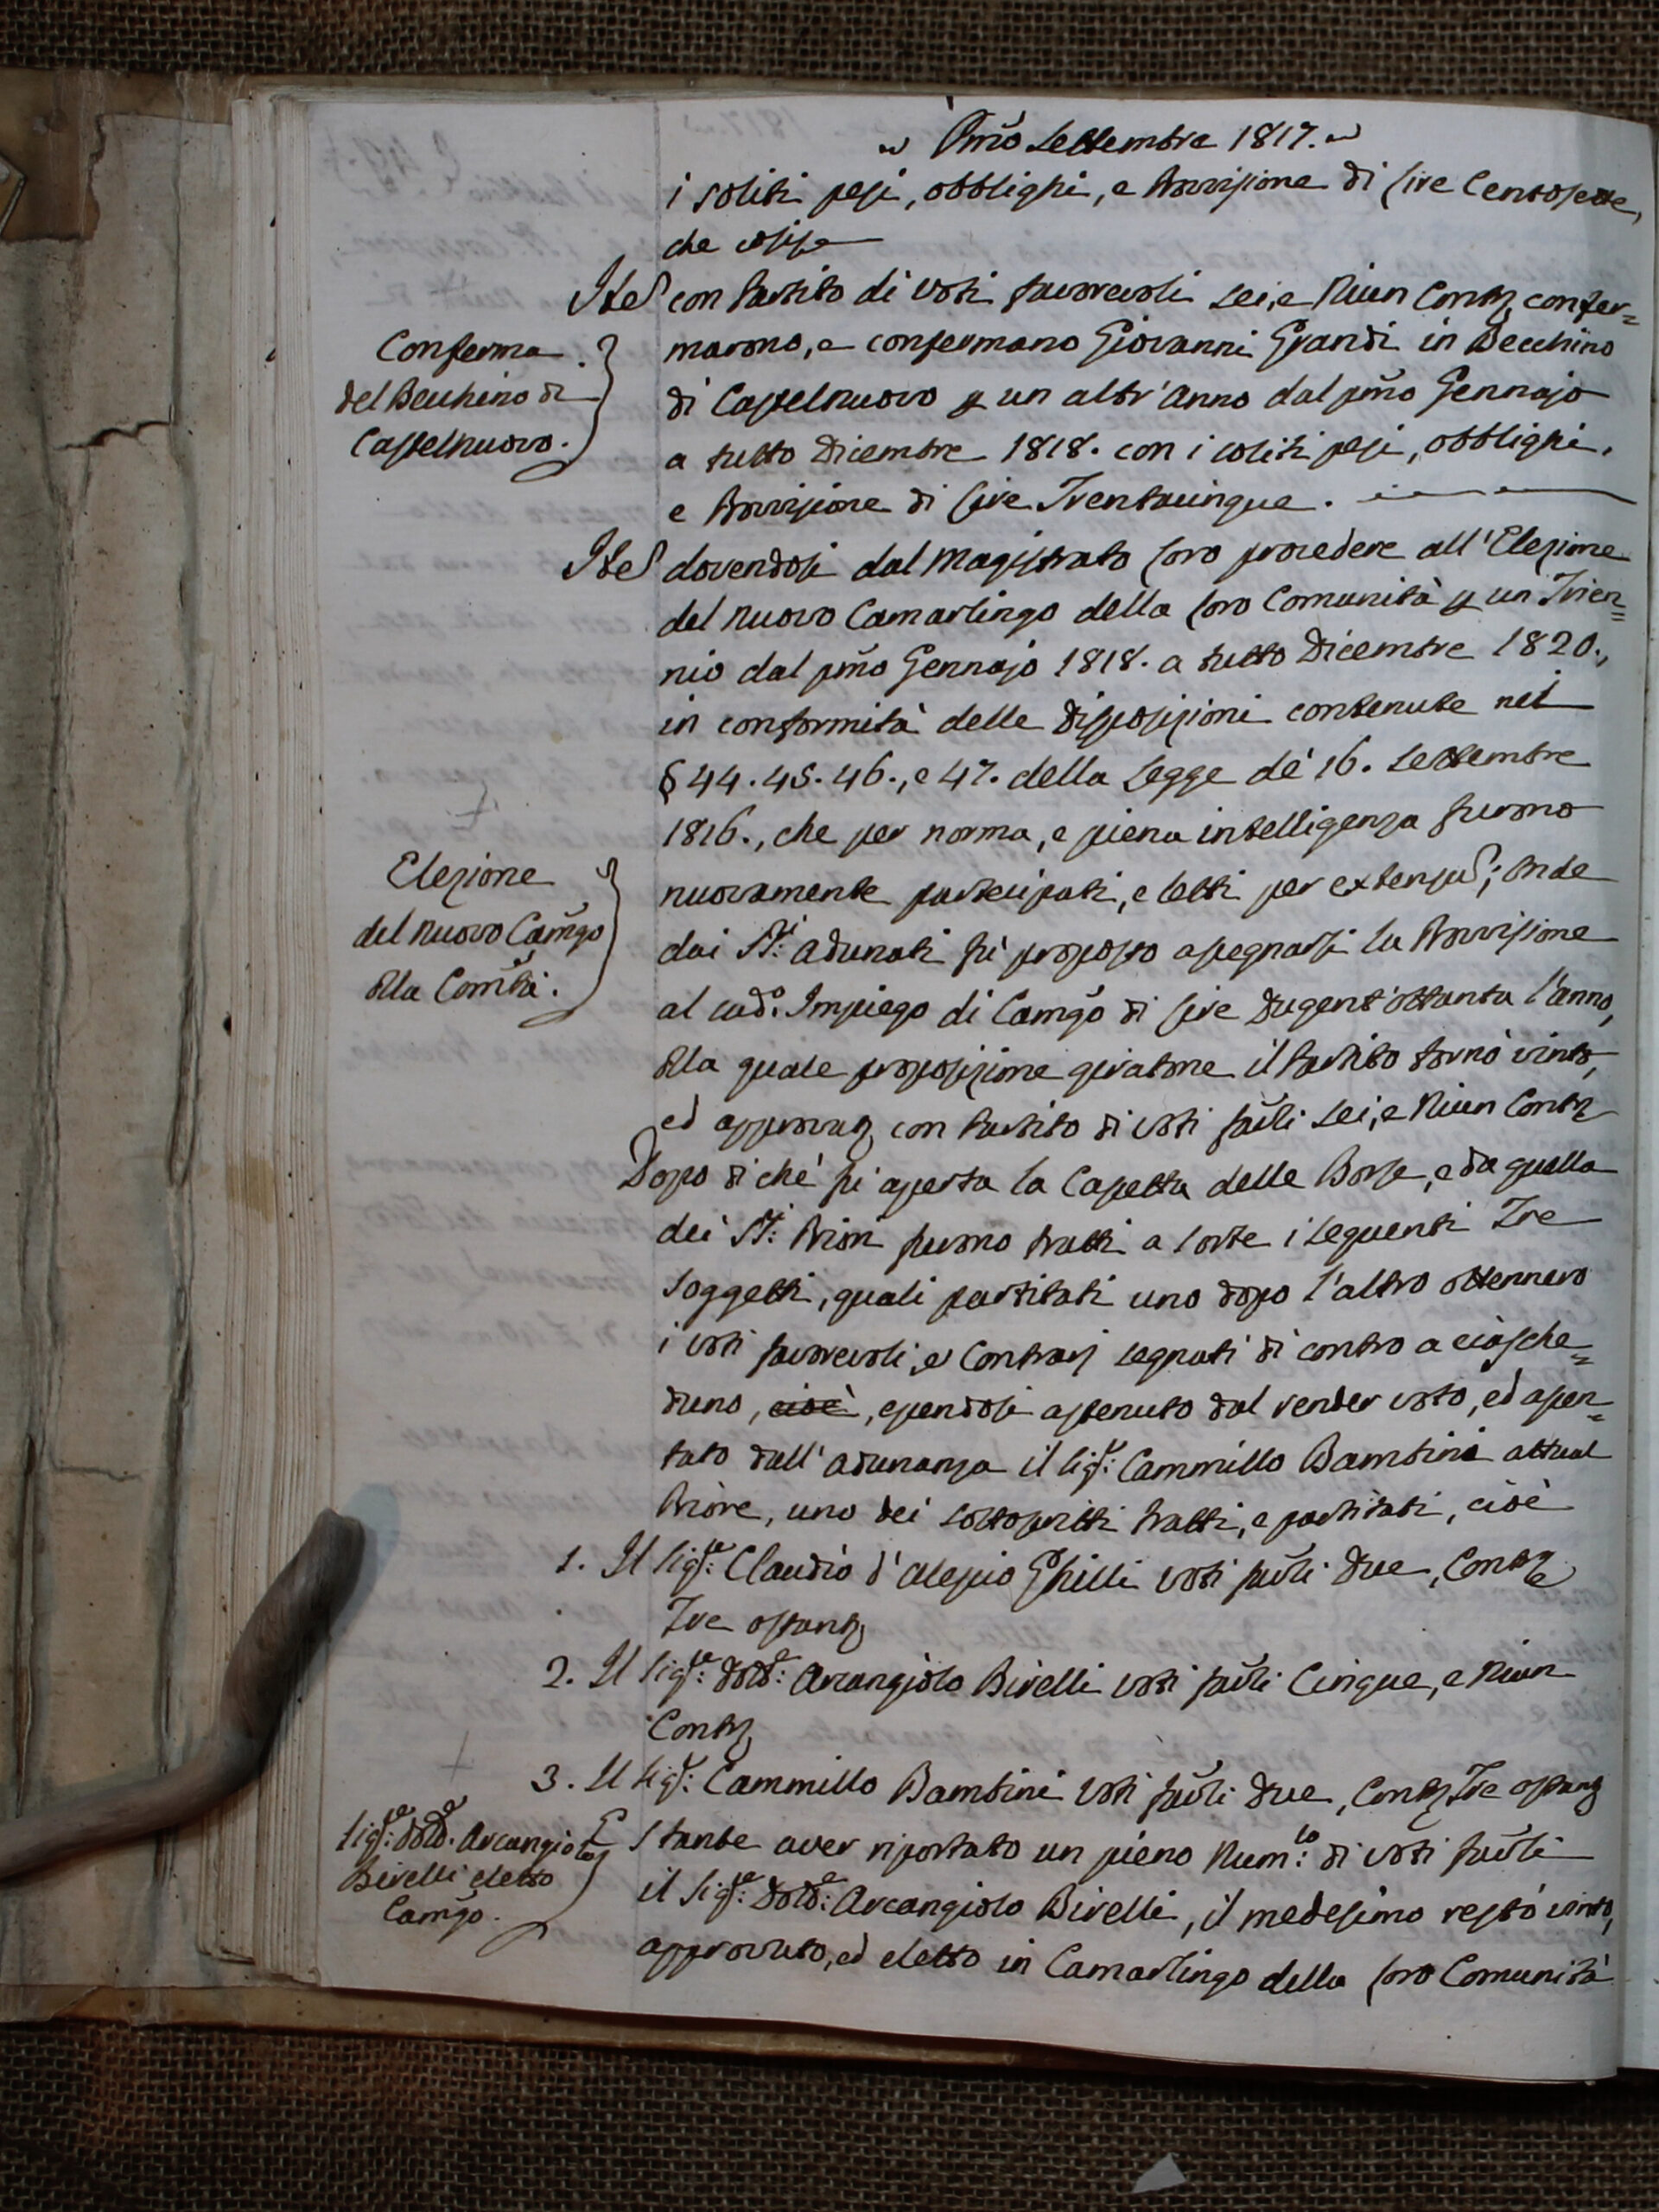 Pmo Settembre 1817.
i soliti pesi, obblighi, e Provvisione di Lire Centosette,
che cosi se
Item con Partito di voti favorevoli sei, e Niun Contro confer=
Conferma
marono, e confermano Giovanni Grandi in Becchino
del Becchino di
di Castelnuovo p un altr'anno dal pmo Gennajo
Castelnuovo.
a tutto Dicembre 1818. con i soliti pesi, obblighi,
e Provvisione di Lire Trentacinque.
Item dovendosi dal Magistrato Loro procedere all'Elezione
del nuovo Camarlingo della Loro Comunità p un Trien=
nio dal pmo Gennajo 1818. a tutto Dicembre 1820.,
in conformità delle disposizioni contenute nei
§ 44. 45. 46., e 47. della Legge de' 16. Settembre
1816., che per norma, e piena intelligenza furono
Elezione
nuovamente partecipati, e letti per extensum; Onde
del nuovo Camgo
dai SSi: adunati fù proposto assegnarsi la Provvisione
dlla Comtà.
al sudo. Impiego di Camgo di Lire Dugent'ottanta l'anno,
dlla quale proposizione giratone il Partito tornò vinto,
ed approvato con Partito di voti favli sei, e Niun Contro
Dopo di chè fù aperta la Cassetta delle Borse, e da quella
dei SSi: Priori furono tratti a sorte i seguenti Tre
Soggetti, quali partitati uno dopo l'altro ottennero
i voti favorevoli, e Contrarj segnati di contro a ciasche=
duno, cioè, essendosi astenuto dal render voto, ed assen=
tato dall'adunanza il Sigr: Cammillo Bambini attual
Priore, uno dei sottoscritti tratti, e partitati, cioè
1. Il Sigre: Claudio d'Alessio Ghilli voti favli due, Contro
Tre ostante
2. Il Sigre: Dotte: Arcangiolo Bivelli voti favli Cinque, e Niun
Contro
3. Il Sigr: Cammillo Bambini voti favli due, Contro Tre ostante
Sigre: Dotte. Arcangiolo
E Stante aver riportato un pieno Num:ro di voti favli
Bivelli eletto
il Sigre: Dotte: Arcangiolo Bivelli, il medesimo restò vinto,
Camgo.
approvato, ed eletto in Camarlingo della Loro Comunità